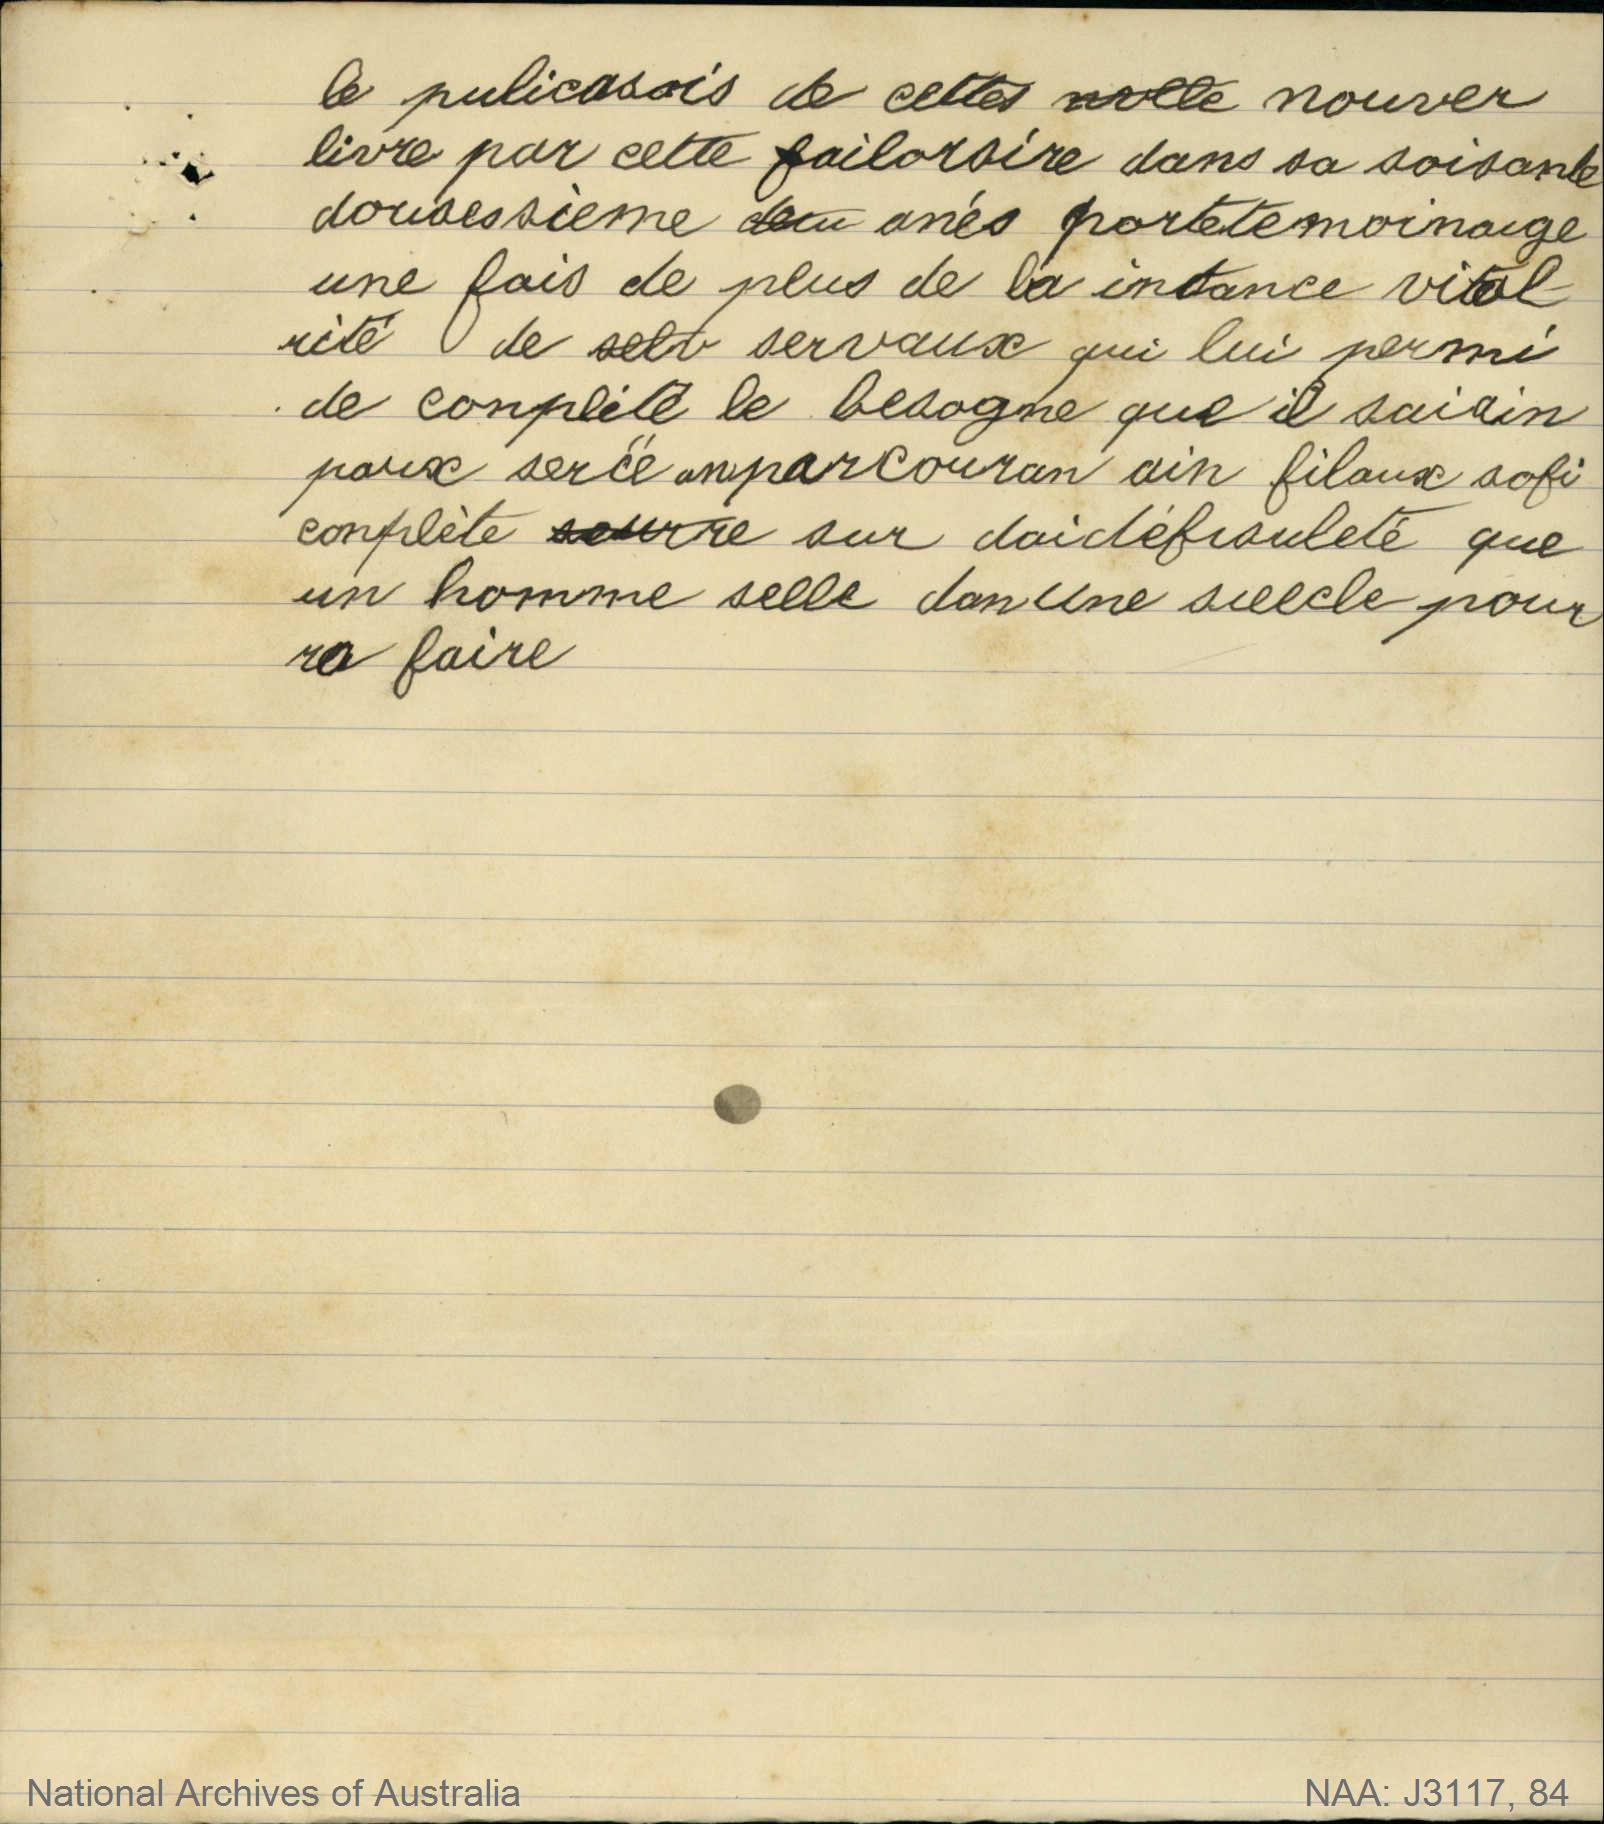 le pulicasois de cettes nolle nouver
livre par cette failorsire dans sa soisante
dousessieme deu anés portetemoinaige
une fois de plus de la intance vital
rité de selv servaux qui lui permi
de conplité le besogne que il saisin
poux sercë anparcouran ain filaux sofi
conplète sourre sur doidéfisuleté que
un homme selle danune sieecle pour
ra faire
National Archives of Australia
NAA: J3117, 84